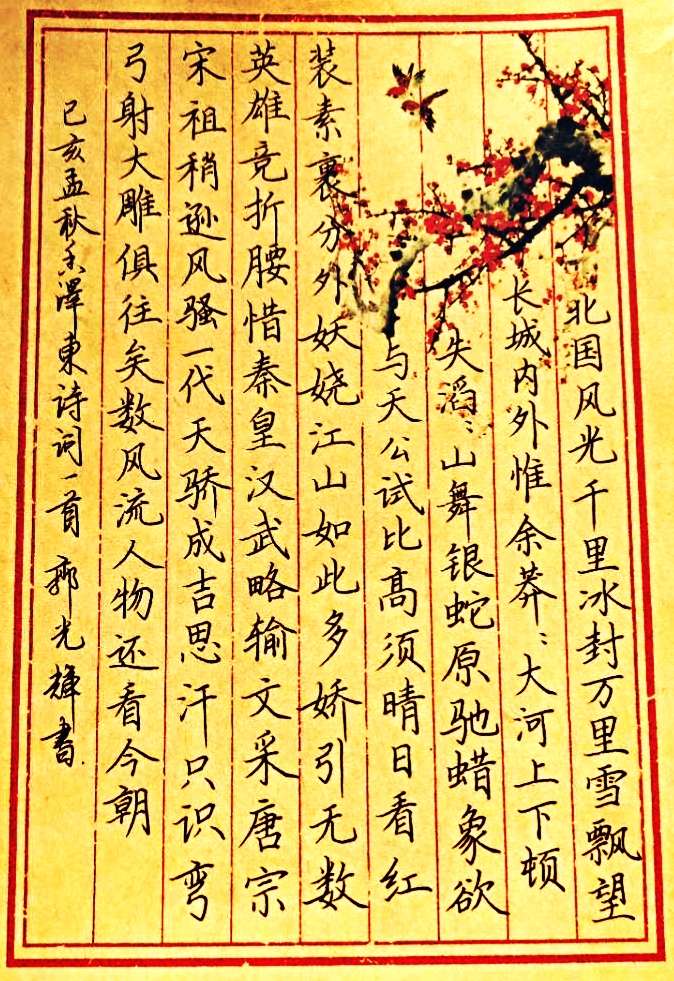 北国风光千里冰封万里雪飘望
长城内外惟余莽〻大河上下顿
失滔〻山舞银蛇原驰蜡象欲
与天公试比高须晴日看红
装素裹分外妖娆江山如此多娇引无数
英雄竞折腰惜秦皇汉武略输文采唐宗
宋祖稍逊风骚一代天骄成吉思汗只识弯
弓射大雕俱往矣数风流人物还看今朝
己亥孟秋毛澤東詩词一首 郭光輝書